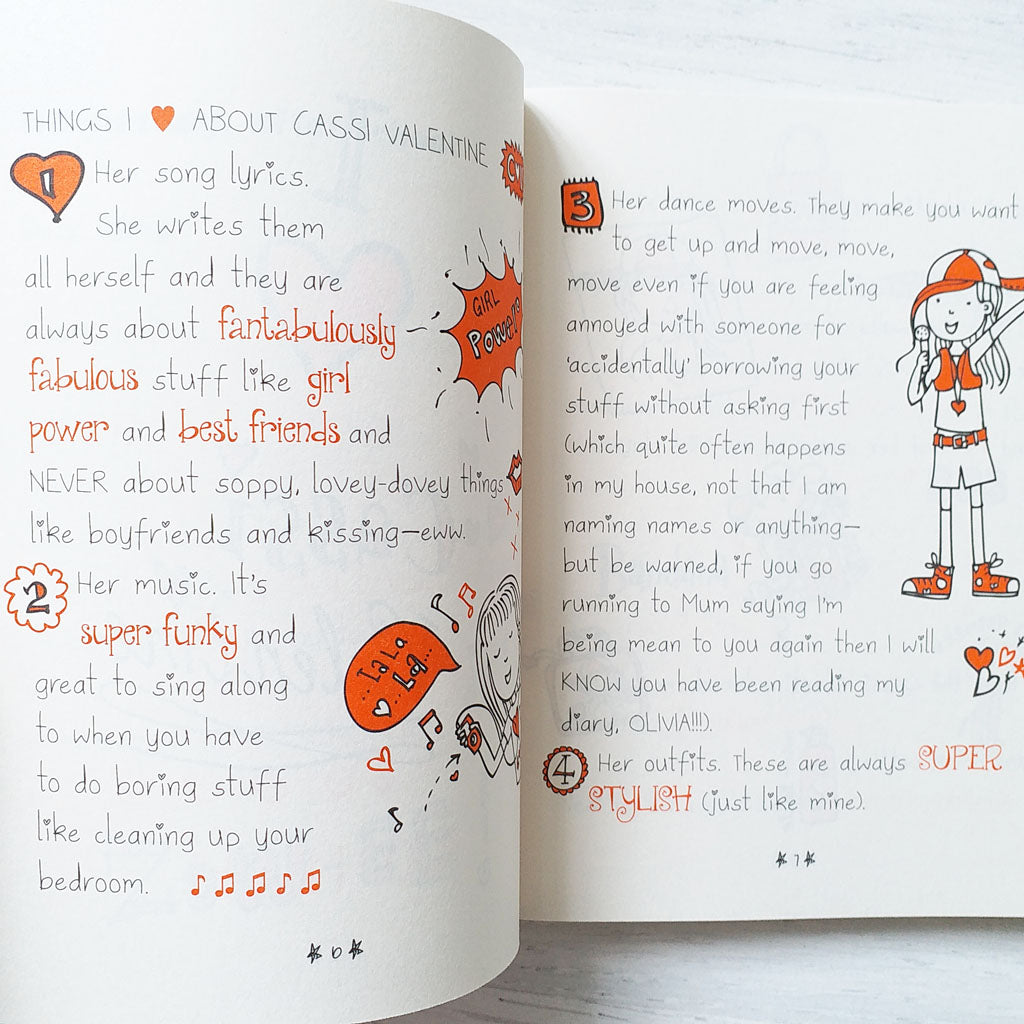 THINGS I ♥ ABOUT CASSI VALENTINE
1 Her song lyrics.
She writes them
all herself and they are
always about fantabulously
fabulous stuff like girl
power and best friends and
NEVER about soppy, lovey-dovey things
like boyfriends and kissing—eww.
GIRL
Power!
2 Her music. It's
super funky and
great to sing along
to when you have
to do boring stuff
like cleaning up your
bedroom.
La La
La...
6
3 Her dance moves. They make you want
to get up and move, move,
move even if you are feeling
annoyed with someone for
'accidentally' borrowing your
stuff without asking first
(which quite often happens
in my house, not that I am
naming names or anything—
but be warned, if you go
running to Mum saying I'm
being mean to you again then I will
KNOW you have been reading my
diary, OLIVIA!!!).
4 Her outfits. These are always SUPER
STYLISH (just like mine).
7